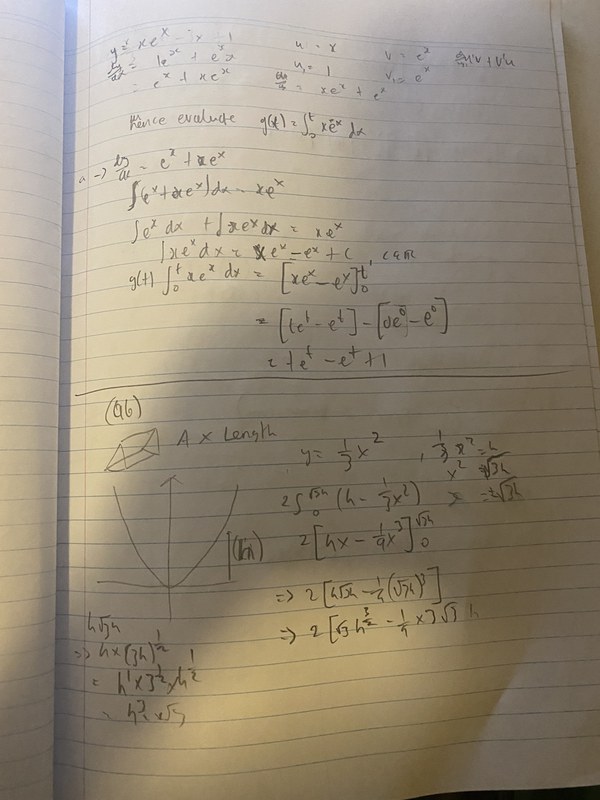 y = xe^x - x - 1 u = x v = e^x
dy/dx = 1e^x + e^x x u₁ = 1 v₁ = e^x u'v + v'u
= e^x + xe^x dy/dx = xe^x + e^x
Hence evaluate g(t) = ∫₀^t xe^x dx
a → dy/dx = e^x + xe^x
∫(e^x + xe^x)dx = xe^x
∫e^x dx + ∫xe^x dx = xe^x
∫xe^x dx = xe^x - e^x + c, c∈R
g(t) ∫₀^t xe^x dx = [xe^x - e^x]₀^t
= [te^t - e^t] - [0e^0 - e^0]
= te^t - e^t + 1
(Q6)
A x Length
y = 1/3 x², 1/3 x² = h
x² = 3h
2∫₀^√3h (h - 1/3 x²) x = ±√3h
2[hx - 1/9 x³]₀^√3h
(h)
⇒ 2[h√3h - 1/9 (√3h)³]
⇒ 2[√3 h^3/2 - 1/9 × 3√3 h
h√3h
⇒ h × (3h)^1/2
= h^1 × 3^1/2 × h^1/2
= h^3/2 × √3